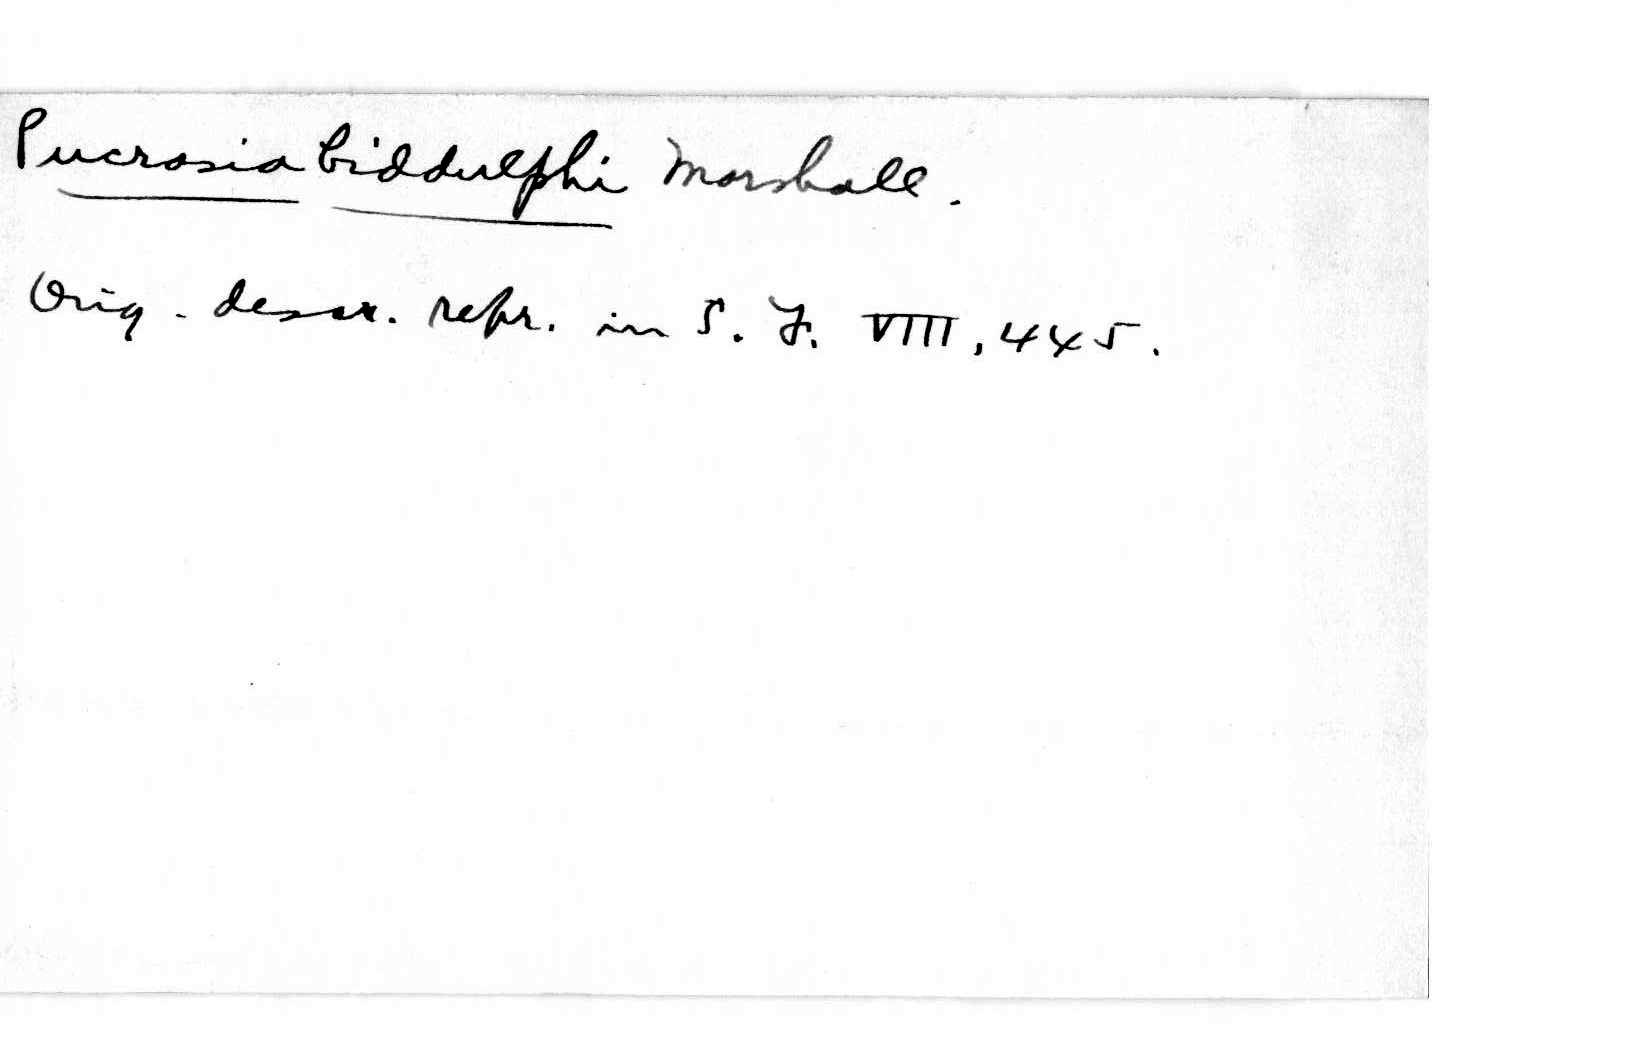 Pucrasia biddulphi Marshall.
Orig. descr. repr. in S. F. VIII, 445.